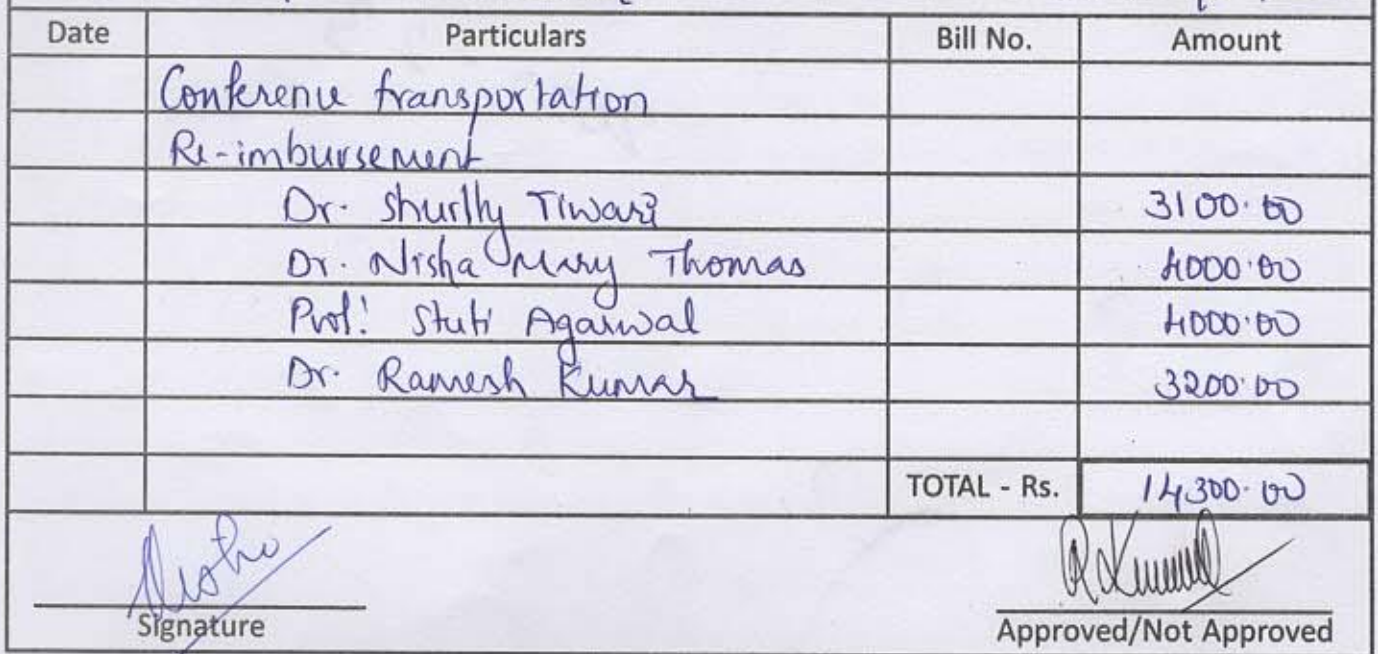 Date Particulars Bill No. Amount
Conference transportation
Re-imbursement
Dr. Shurlly Tiwari 3100.00
Dr. Nisha Mary Thomas 4000.00
Prof. Stuti Agarwal 4000.00
Dr. Ramesh Kumar 3200.00
TOTAL - Rs. 14,300.00
Nisha
Signature Approved/Not Approved